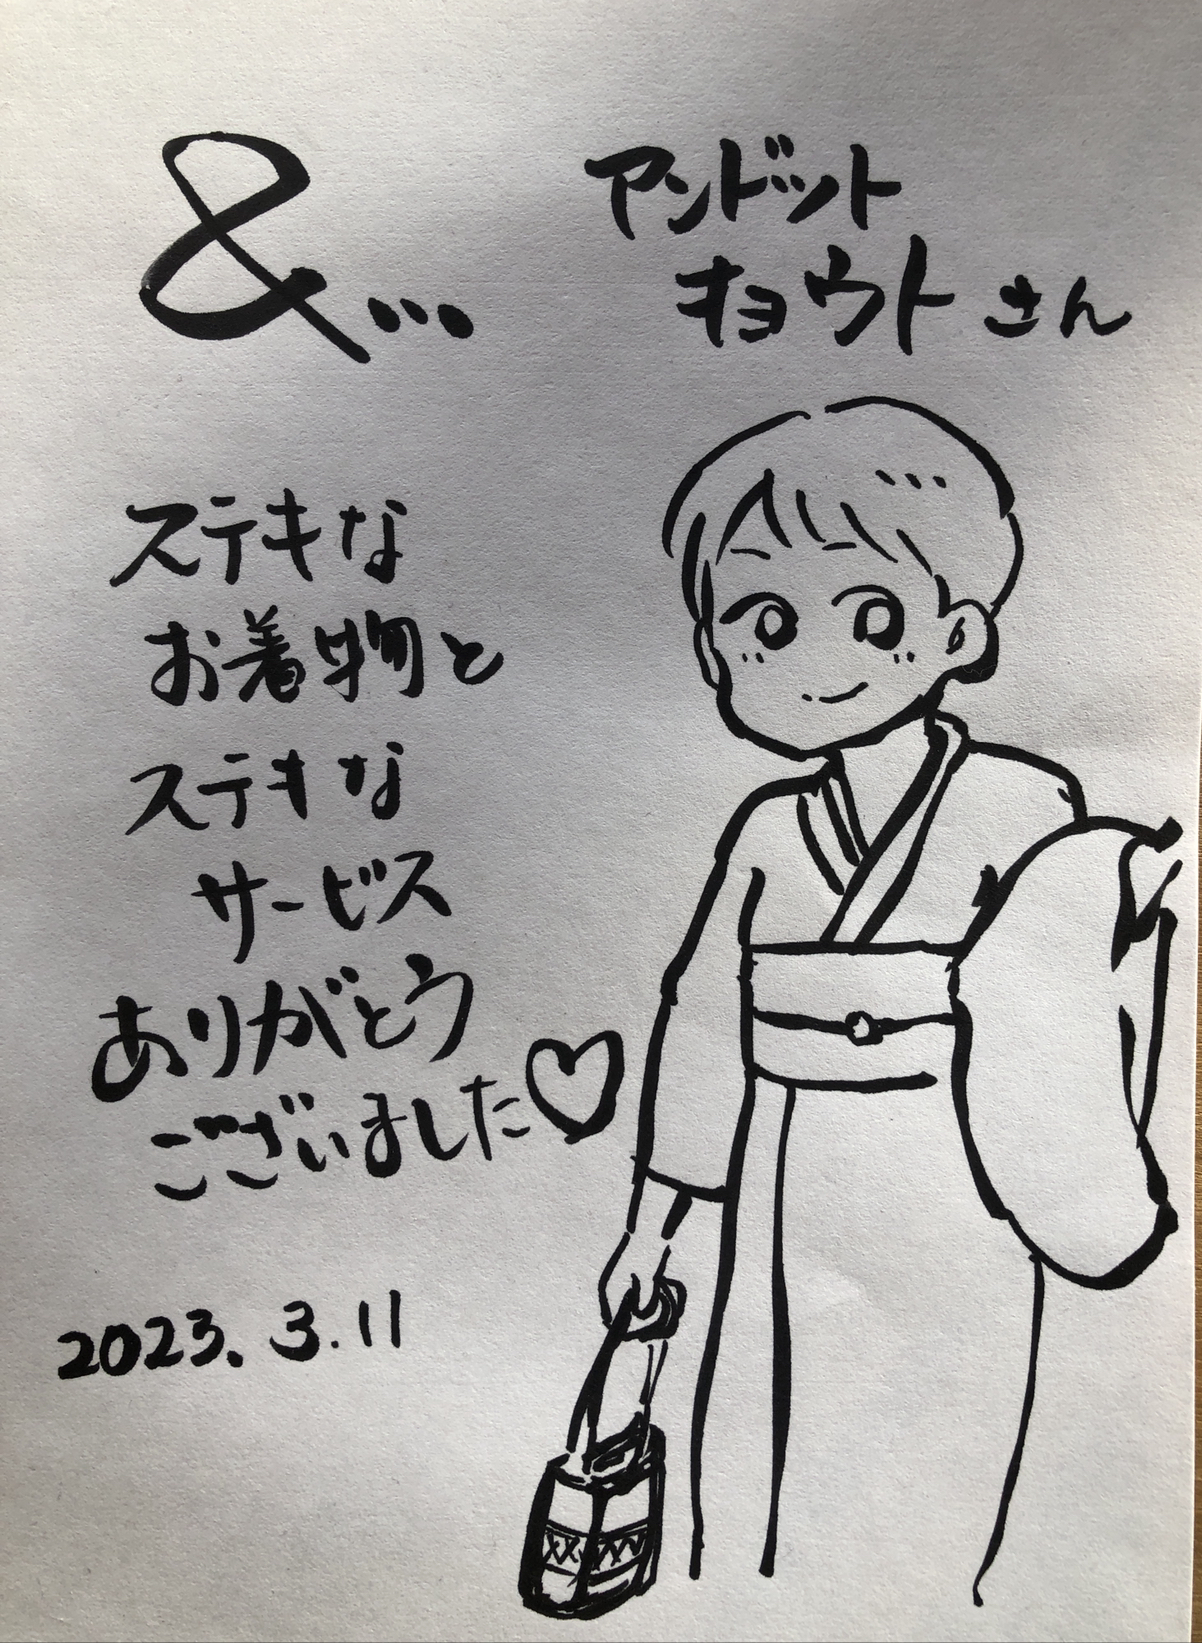 &...
アンドット
キョウトさん
ステキな
お着物と
ステキな
サービス
ありがとう
ございました♡
2023.3.11